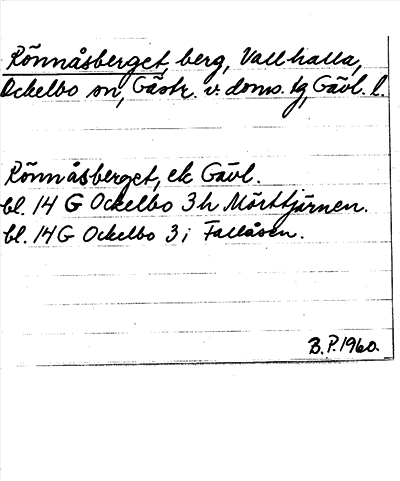 Rönnåsberget, berg, Vallhalla,
Ockelbo sn, Gästr. v. doms. tg, Gävl. l.
Rönnåsberget, ek Gävl.
bl. 14 G Ockelbo 3 h Mörttjärnen.
bl. 14 G Ockelbo 3 i Fallåsen.
B.P. 1960.